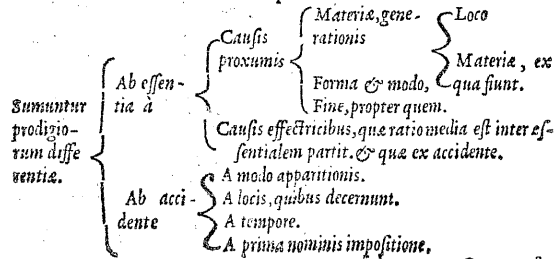 Sumuntur
prodigio-
rum diffe
rentiæ.
Ab essen-
tia à
Causis
proxumis
Materiæ, gene-
rationis
Loco
Materiæ, ex
qua fiunt.
Forma & modo,
Fine, propter quem.
Causis effectricibus, quæ ratio media est inter es-
sentialem partit. & quæ ex accidente.
Ab acci-
dente
A modo apparitionis.
A locis, quibus decernunt.
A tempore.
A prima nominis impositione.